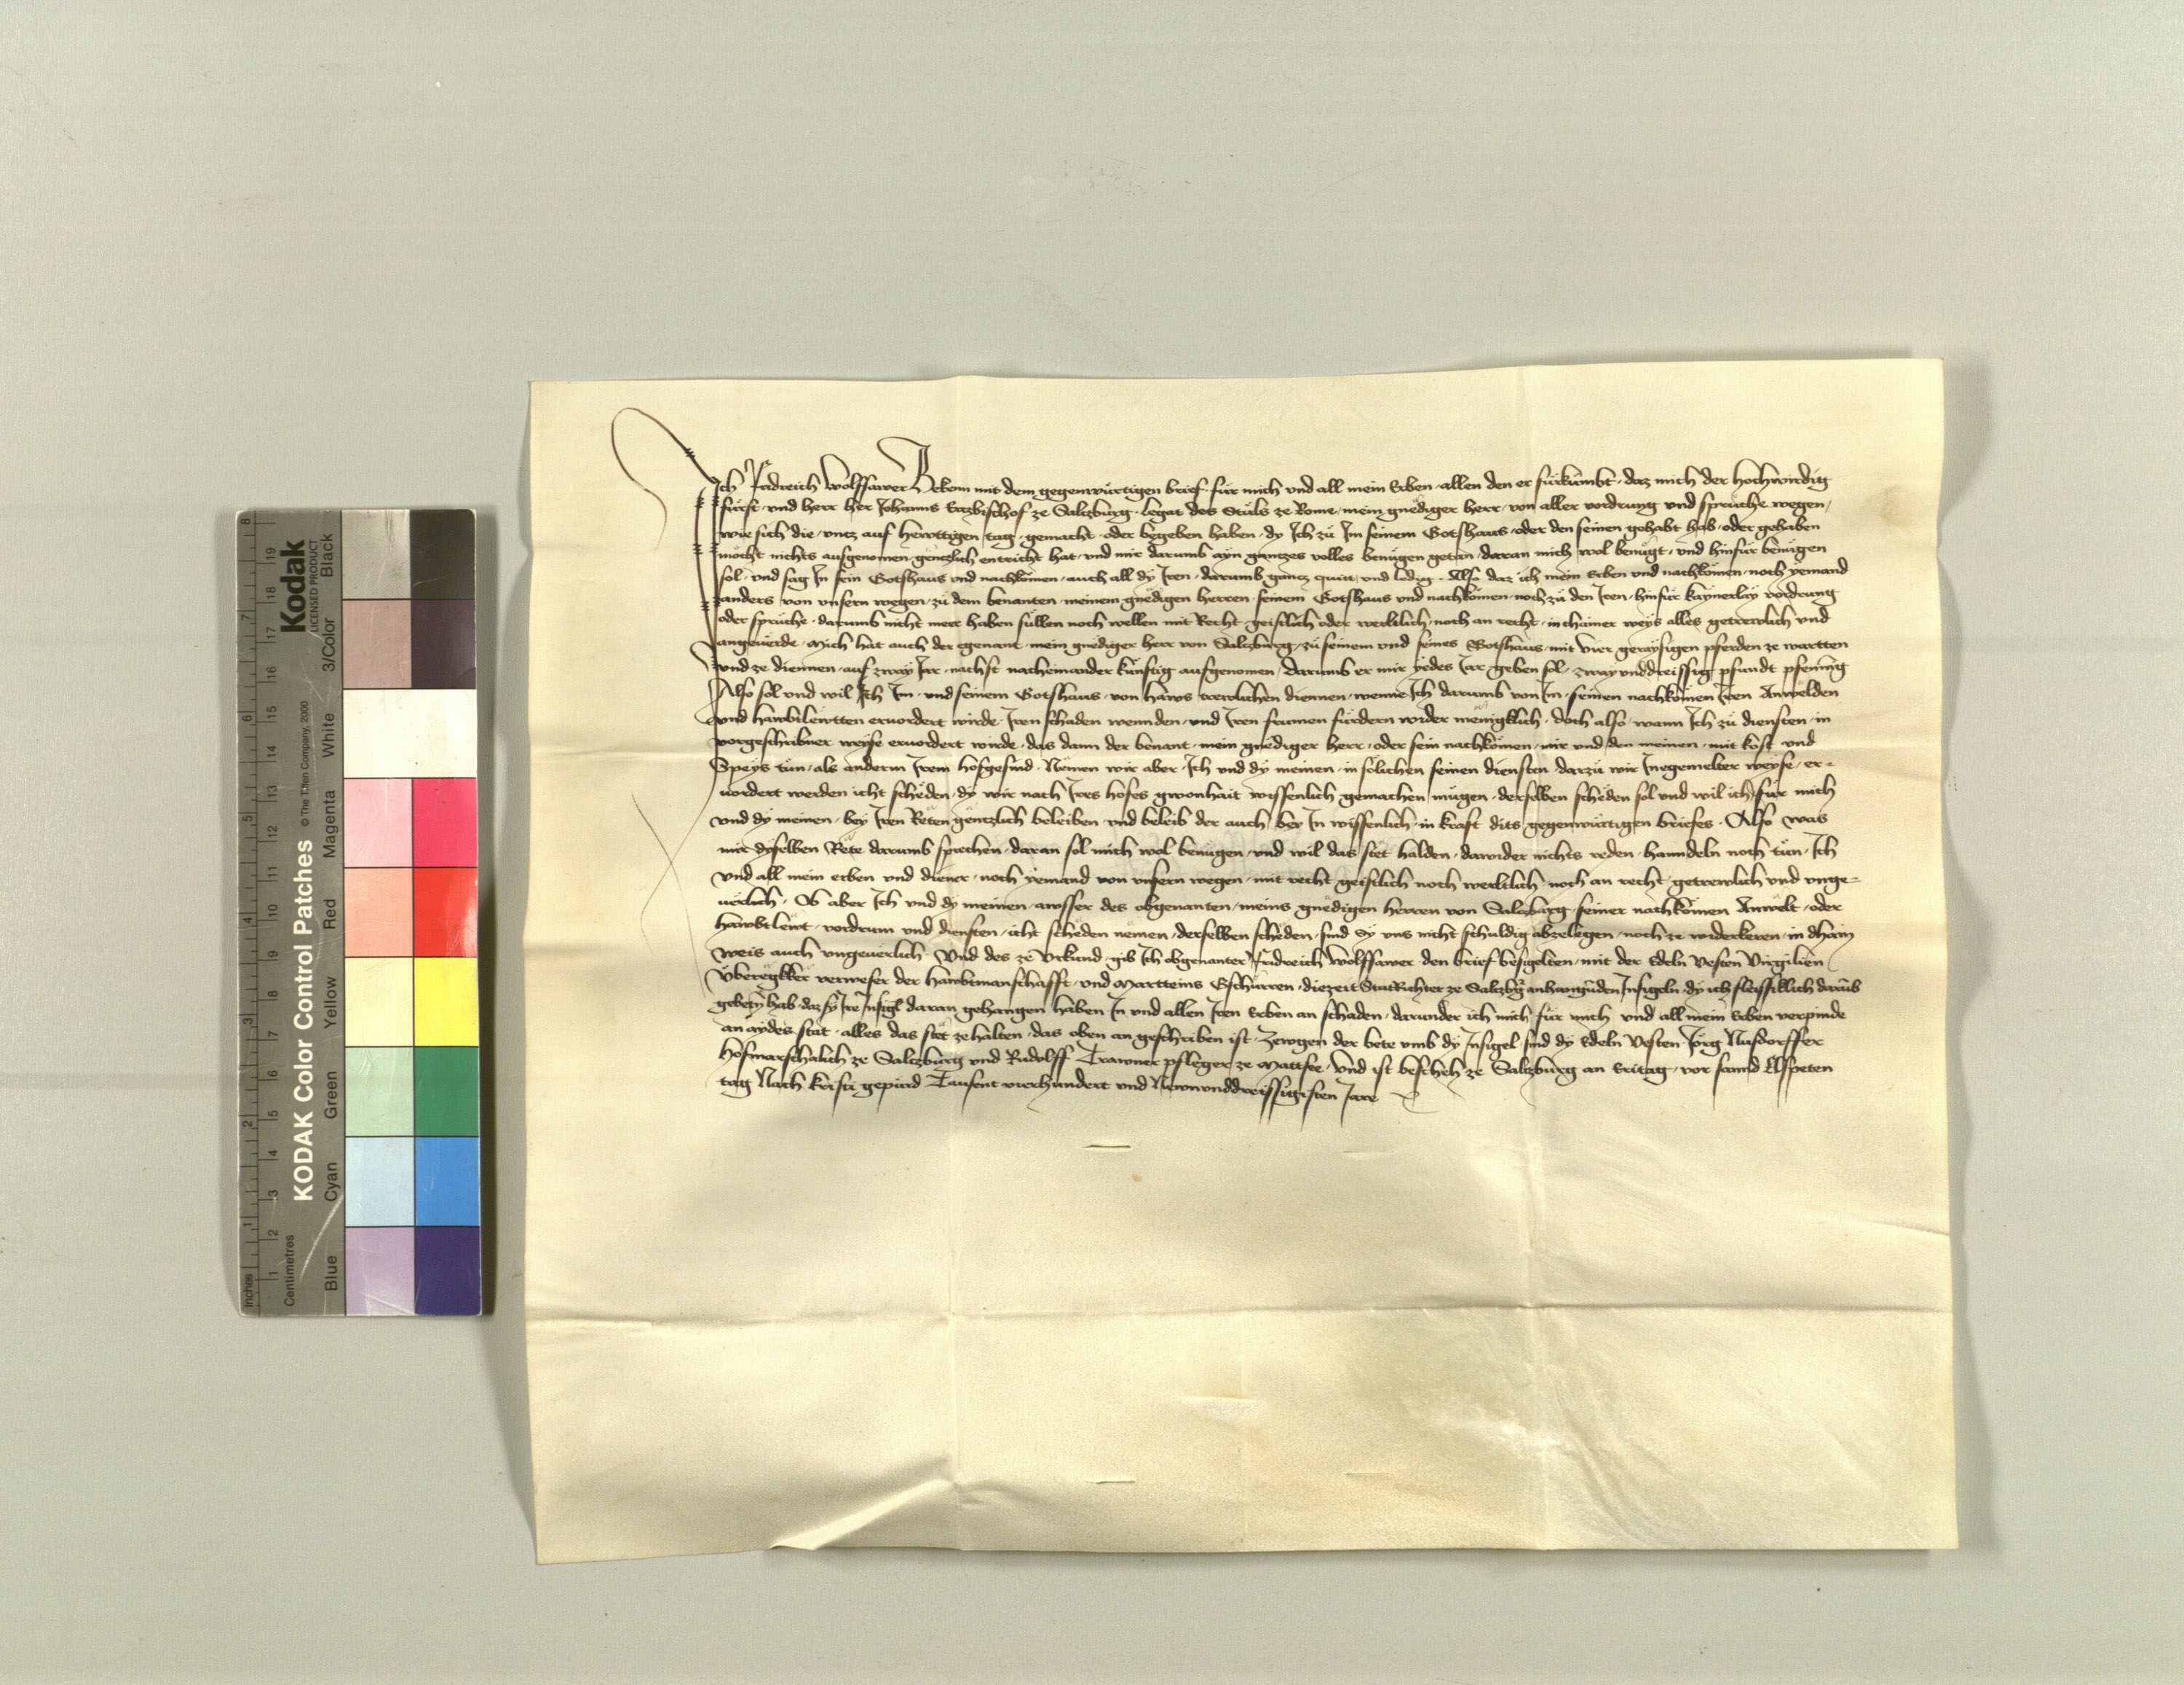 Ich Fridreich Wolfsawer Bekenn mit dem gegenwürtigen brief für mich und all mein Erben allen den er fürkumbt daz mich der Hochwirdig
fürst und herr her Johanns Ertzbischof ze Salzburg legat des Stůls ze Rome mein gnediger herr von aller vordrung und sprüche wegen
wie sich die untz auf hewttigen tag gemacht oder begeben haben dy Ich zu Im seinem Gotshaus oder den seinen gehabt hab oder gehaben
möcht nichts ausgenomen gentzlich entricht hat und mir darumb ayn gantzes volles benügen getan daran mich wol benügt und hinfür benügen
sol und sag In sein Gotshaus und nachkomen auch all dy Iren darumb gantz quitt und ledig Also daz ich mein Erben und nachkomen noch yemand
anders von unsern wegen zu dem benanten meinem gnedigen herren seinem Gotshaus und nachkomen noch zu den Iren hinfür kaynerlay vordrung
oder sprüche darumb nicht meer haben süllen noch wellen mit Recht geistlich oder werltlich noch an recht in chainer weys alles getrewlich und
angeuerde Mich hat auch der egenant mein gnediger herr von Salzburg zu seinem und seines Gotshaus mit vier geraysigen pferden ze wartten
und ze diennen auf zway Jar nachst nacheinander künftig aufgenomen darumb er mir yedes Jar geben sol zway unddreissig pfundt pfenning
Also sol und wil Ich Im und seinem Gotshaus von haws trewlichen diennen wenne Ich darumb von Im seinen nachkomen Iren Anwelden
und hawbtlewtten eruordert wirde Iren schaden wennden und Iren frumen fürdern wider menigklich doch also wann Ich zu diensten in
vorgeschribner weyse eruordert wirde das dann der benant mein gnediger herr oder sein nachkomen mir und den meinen mit kost und
Speys tun als anderm Irem hofgesind Nemen wir aber Ich und dy meinen in solichen seinen diensten darzu wir Inegemelter weyse er=
uordert werden icht scheden dy wir nach Ires hofes gwonhait wissenlich gemachen mügen derselben scheden sol und wil ich für mich
und dy meinen bey Iren Reten gentzlich beleiben und beleib der auch bey In wissenlich in kraft dits gegenwürtigen briefes Also was
mir dyselben Rete darumb sprechen daran sol mich wol benügen und wil das stet halden dawider nichts reden hanndeln noch tun Ich
und all mein erben und diener noch yemand von unsern wegen mit recht geistlich noch werltlich noch an recht getrewlich und unge=
uerlich Ob aber Ich und dy meinen awsser des obgenanten meins gnedigen herren von Salzburg seiner nachkomen Anwelt oder
hawbtlewt vordrum und diensten icht scheden nemen derselben scheden sind Sy uns nicht schuldig abzelegen noch ze widerkeren in dhain
weis auch ungeuerlich Und des ze Urkund gib Ich obgenanter Fridreich Wolfsawer den brief besigelten mit der Edeln Vesten Virgilien
Überegkker verweser der hawbtmanschafft und Marteins diezeit StatRichter ze Salzburg anhangunden Insigeln dy ich fleissiklich darumb
gebeten hab daz sy Ire Insigl daran gehangen haben In und allen Iren Erben an schaden darunder ich mich für mich und all mein Erben verpinde
an aydes stat alles das stet ze halten das oben an geschriben ist Zewgen der bete umb dy Insigel sind dy Edeln Vesten Jörg Nusdorffer
Hofmarschalich ze Salczburg und Rudolff Trawner pfleger ze Mattsee Und ist bescheh ze Salzburg an Eritag vor sannd
tag Nach kristi gepürd Tausent vierhundert und Newnunddreissigisten Jare
KODAK Color Control Patches © The Tiffen Company, 2000
Kodak
LICENSED PRODUCT
Inches
Centimetres
Blue Cyan Green Yellow Red Magenta White 3/Color Black